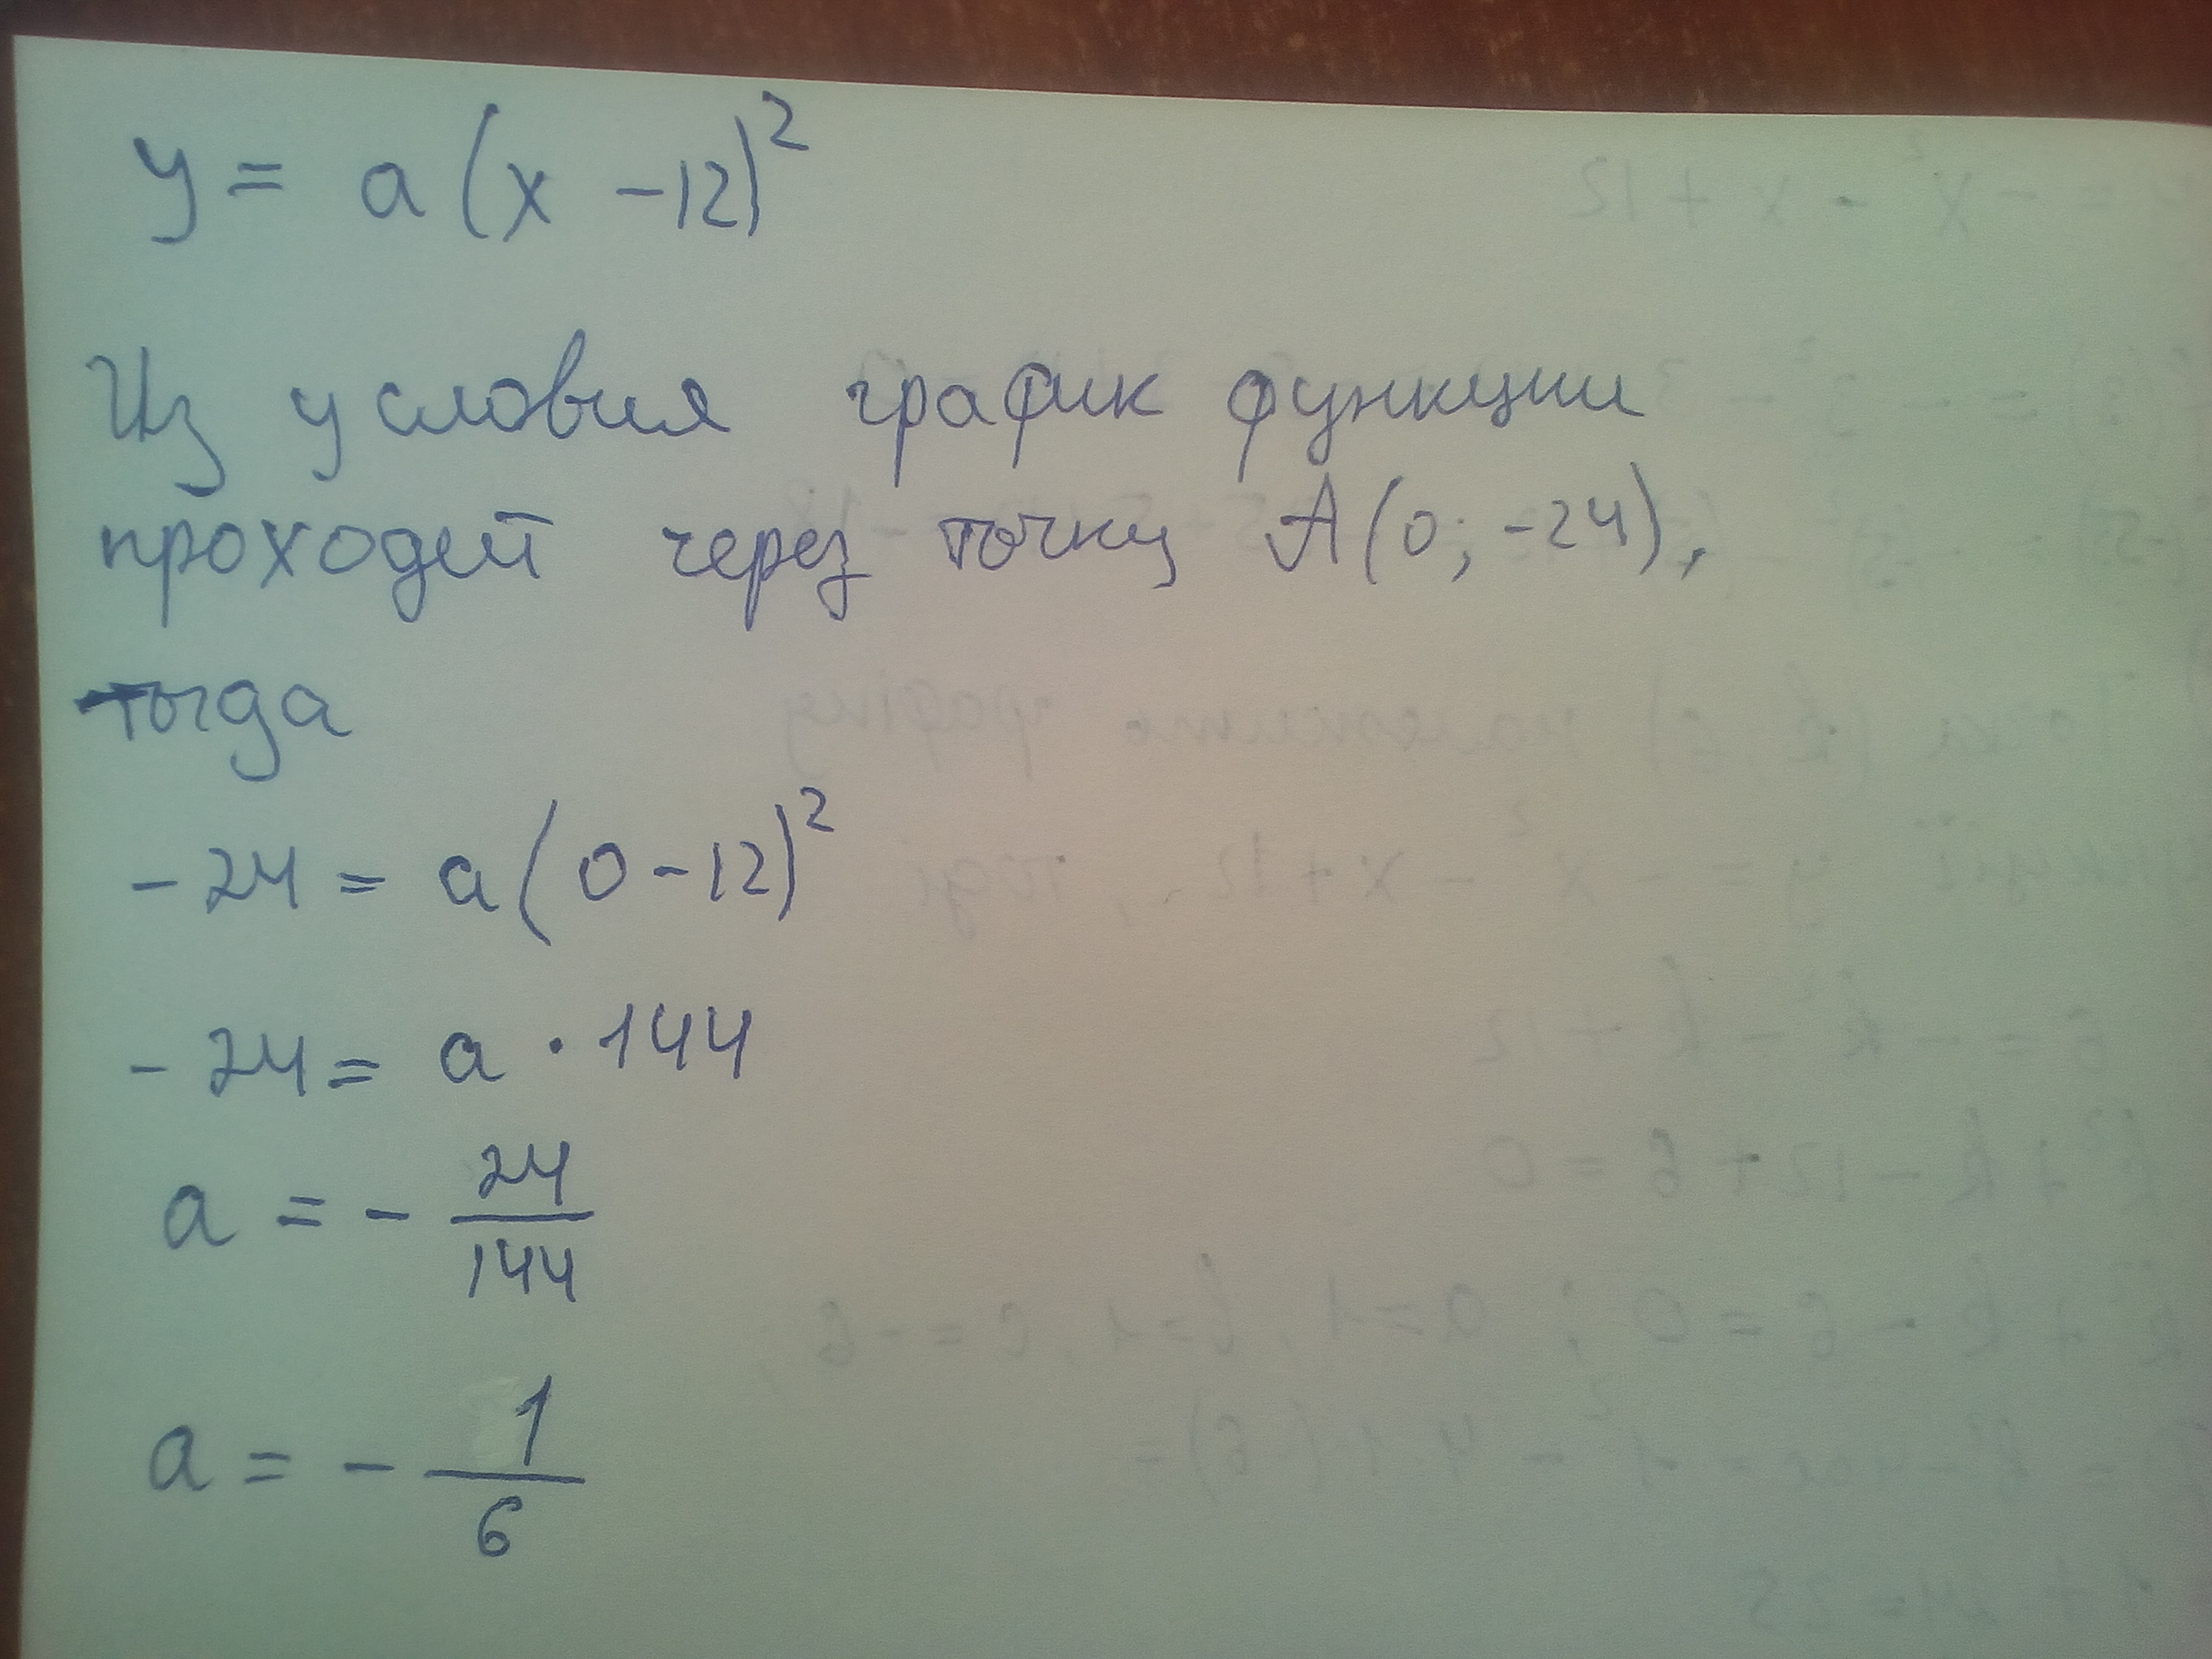 y = a(x - 12)²
Из условия график функции
проходит через точку A(0; -24),
тогда
-24 = a(0-12)²
-24 = a · 144
a = - 24/144
a = - 1/6